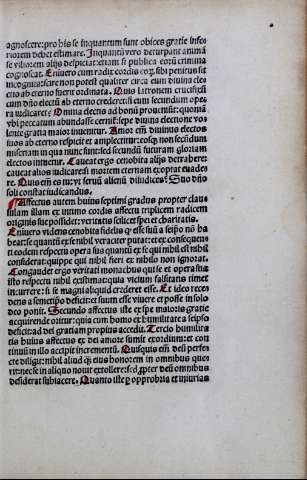 agnoscere: pro his se inquantum sunt obsces gratie infe
riorem debet estimare. Inquantū vero deturpant animā
se viliorem alijs despiciat: etiam si publica eorū crimina
cognoscat. Enimvero cum radix cordis eorū sibi penitus sit
incognita: scire non potest qualiter circa eum divina ele
ctio ab eterno fuerit ordinata. Quis latronem crucifixū
cum dn̄o electū ab eterno crederet: si eum secundum opera
iudicaret? Omnia electis ad bonū proveniūt: quoniā
ybi peccatum abundasse cernit: sepe divina electione vo
lente gratia maior invenitur. Amor em̄ divinus electos
suos ab eterno respicit et amplectitur: eosq non secundum
miseriam in qua nunc sunt: sed secundū futuram gloriam
electos intuetur. Caveat ergo cenobita alijs detrahere:
caveat alios iudicare: si mortem eternam exoptat evade
re. Quis em̄ es tu: vt servū alienū diiudices? Suo dn̄o
soli constat iudicandus.
Affectus autem huius septimi gradus propter clau
sulam illam ex intimo cordis affectu triplicem radicem
originis sue possidet: veritatis scilicet spei et charitatis.
Enimvero videns cenobita fidelis q esse suū a seipo nō ha
beat: se quantū ex se nihil veraciter putat: et ex consequen
ti eodem respectu opera sua quantū ex se qui nihil est nihil
considerat: quippe qui nihil fieri ex nihilo non ignorat.
Congaudet ergo veritati monachus qui se et opera sua
isto respectu nihil existimat: quia vicium falsitatis timet
incurrere: si se magni aliquid crederet esse. Et ideo rece
dens a semetipso deficit: et suum esse vivere et posse in solo
deo ponit. Secundo affectus iste ex spe maioris gratie
acquirende oritur: quia cum homo ex humilitate a seipso
deficit: ad dei gratiam propius accedit. Tercio humilita
tis huius affectus ex dei amore sumit exordium: et con
tinuum in illo accipit incrementū. Quisquis em̄ deū perfe
cte diligit: nihil aliud q̄ eius honorem in omnibus quer
it: nec se in aliquo novit extollere: sed ꝓpter deū omnibus
desiderat subiacere. Quanto iste ꝑ opprobria et iniurias